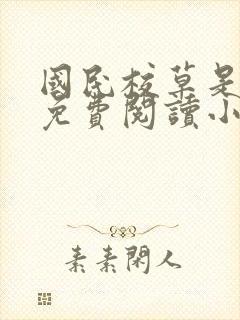 國民校草是
免費閱讀小
素素閑人